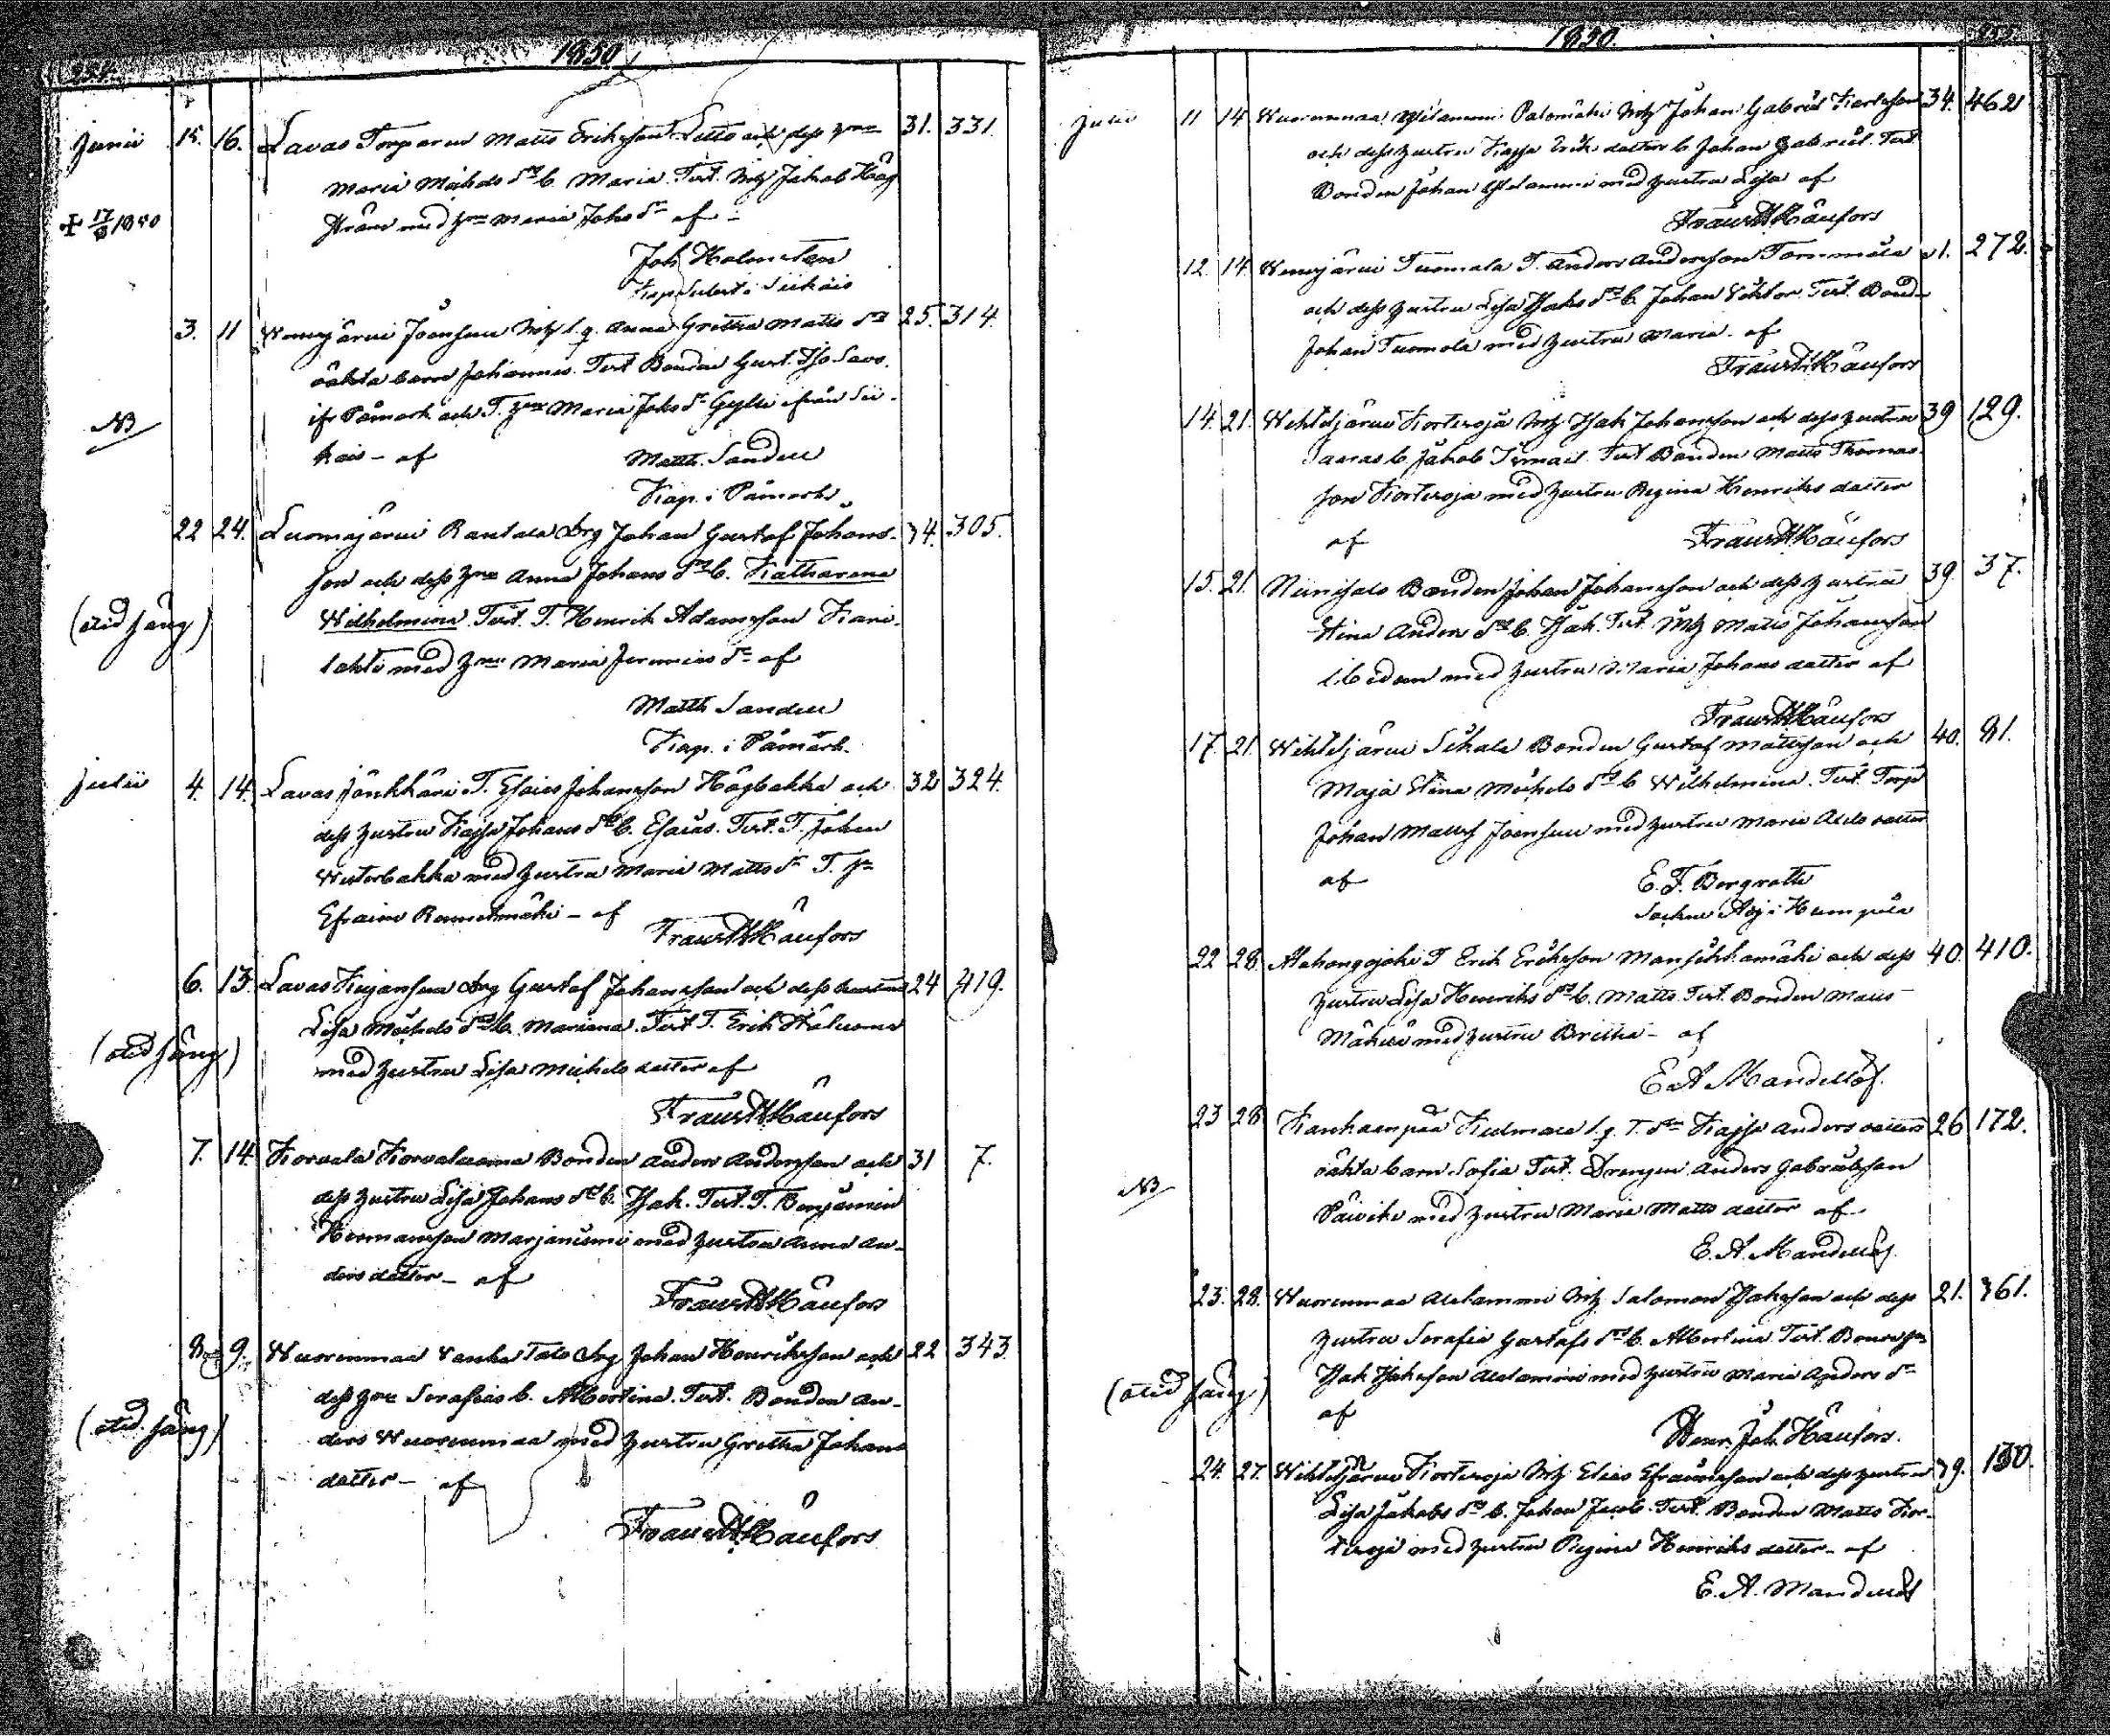 254.
1850
Junii 15. 16. Lavas Torparen Matts Eriksson Letto och dess hu 31. 331.
Maria Michels dr b. Maria. Test. Inh Jakob Hög
Ström med hu Maria Johs dr af
+ 17/6 1850
Joh Holmsten
Kap. i Siikais
3. 11 Wenesjärvi Joensuu Inh l. q. Anna Gretha Matts dr 25. 314.
oäkta barn Johannes. Test Bonden Gust.
ifr Påmark och T. hu Maria Johs dr Gylli ifrån Sii-
NB
kais - af Matth. Sandell
Kap. i Påmark
22 24. Luomajärvi Rantala drg Johan Gustaf Johans- 34. 305.
son och dess hu Anna Johans dr b. Katharena
Wilhelmina. Test. T. Henrik Adamsson Kani-
(otid säng)
lahti med hu Maria Jeremias dr af
Matth Sandell
Kap. i Påmark.
Julii 4. 14. Lavas Jänkkäri T. Esaias Johansson Högbakka och 32 324.
dess hustru Kajsa Johans dr b. Esaias. Test. T. Johan
Westerbakka med hustru Maria Matts dr T. hu
Efraim - af Frans Häufors
6. 13. Lavas drg Gustaf Johansson och dess hustru 24 419.
Lisa Michels dr b. Mariana. Test T. Erik
(otid säng)
med hustru Lisa Michels datter af
Frans Häufors
7. 14. Korvala Korvaluoma Bonden Anders Andersson och 31 7.
dess hustru Lisa Johans dr b. Isak. Test. T. Benjamin
Hermansson Marjaniemi med hustru Anna An-
ders datter - af
Frans Häufors
8 9. Wuorenmaa Vanha Talo drg Johan Henriksson och 22 343.
dess hu Serafias b. Albertina. Test. Bonden An-
ders Wuorenmaa med hustru Gretha Johans
(otid. säng)
datter - af
Frans Häufors
1850.
255.
Julii 11 14 Wuorenmaa Palomäki Inh Johan Gabriel 34. 462
och dess hustru Kajsa Eriks datter b Johan Gabriel. Test.
Bonden Johan med hustru Lisa af
Frans Häufors
12. 14 Wenesjärvi Tuomala T. Anders Andersson Tommola 272.
och dess hustru Lisa Isaks dr b. Johan Viktor. Test. Bond-
Johan Tuomola med hustru Maria - af
Frans Häufors
14. 21. Wihteljärvi Kortesoja Inh Isak Johansson och dess hustru 39 129.
Saaras b Jakob Ismael. Test Bonden Matts Thomas-
son Kortesoja med hustru Regina Henriks datter
af Frans Häufors
15. 21. Niinisalo Bonden Johan Johansson och dess hustru 39. 37.
Stina Anders dr b. Isak. Test. Inh Matts Johansson
ibidem med hustru Maria Johans datter af
Frans Häufors
17. 21. Wihteljärvi Bonden Gustaf Mattsson och 40. 81.
Maja Stina Michels dr b Wilhelmina. Test. Torp
Johan Matts Joensuu med hustru Maria datter
af E. F. Bergroth
Socken Adj i Hum
22 28. Alahongojoki T Erik Eriksson Mansikkamäki och dess 40. 410.
hustru Lisa Henriks dr b. Matts. Test. Bonden Matts
med hustru Britha - af
E A Mandellöf.
23 28 Kankaanpää l. q. T. dr Kajsa Anders datters 26 172.
oäkta barn Sofia Test. Drengen Anders Gabrielsson
NB
Päivike med hustru Maria Matts datter af
E. A. Mandellöf.
23. 28. Wuorenmaa Alatammi Inh Salomon Isaksson och dess 21. 361.
hustru Serafia Gustafs dr b. Albertina Test.
Isak Isaksson Alatammi med hustru Maria Anders dr
(otid säng)
af
Henr. Joh. Häufors.
24. 27. Wihteljärvi Kortesoja Inh Elias Efraimsson och dess hustru 39. 130.
Lisa Jakobs dr b. Johan Jacob. Test. Bonden Matts Kor-
tesoja med hustru Regina Henriks datter - af
E. A. Mandellöf